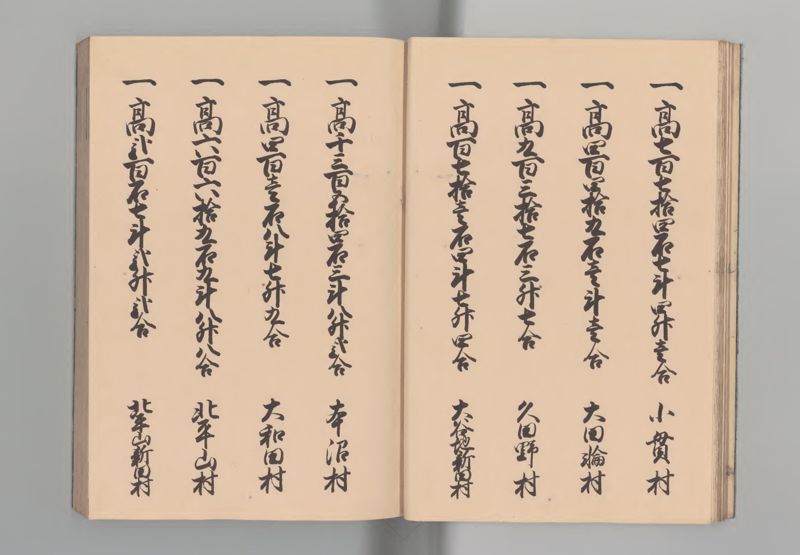 一高七百七拾四石七斗四升壱合　小貫村
一高四百四拾九石壱斗壱合　大田輪村
一高九百三拾七石三升七合　久田野村
一高百七拾壱石四斗七升四合　新田村
一高千三百五拾四石三斗八升弐合　本沼村
一高四百壱石八斗七升九合　大和田村
一高六百六拾九石九斗八升八合　北平山村
一高弐百石七斗弐升弐合　北平山新田村